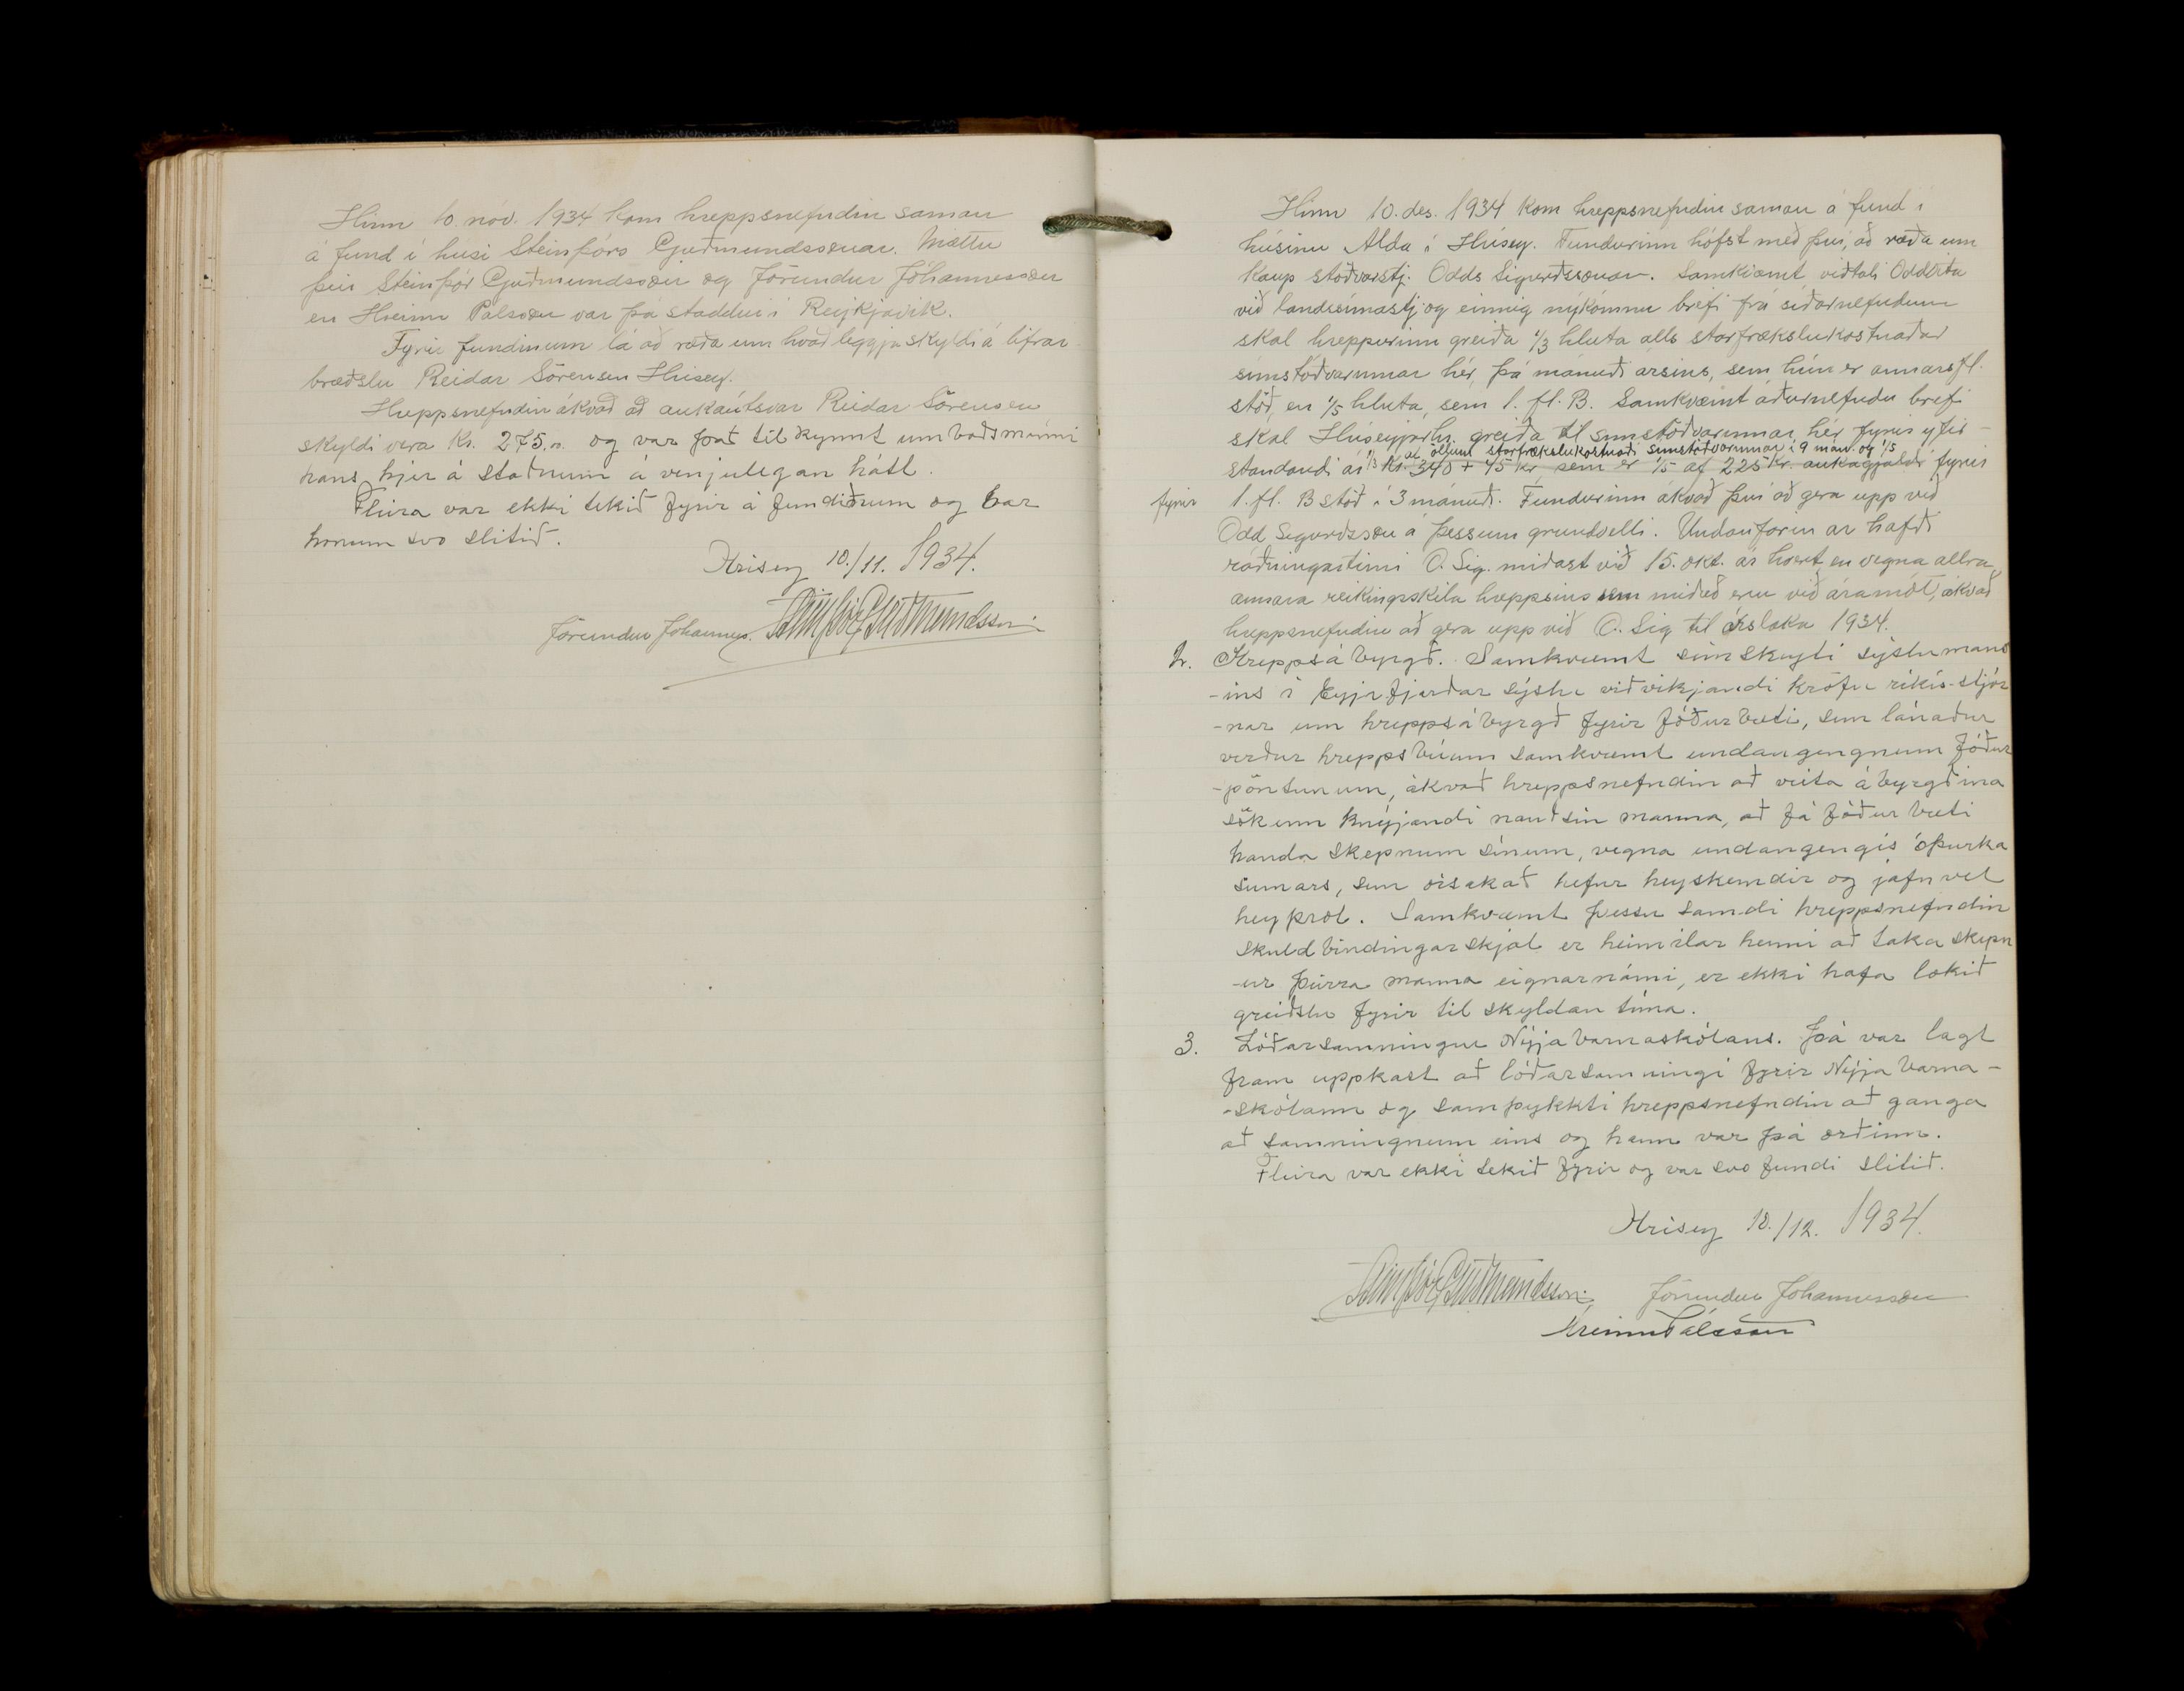 Hinn 10. nóv. 1934 kom hreppsnefndin saman
á fund í húsi Steinþórs Guðmundssonar. Mættu
þeir Steinþór Guðmundsson og Jörundur Jóhannesson
en Hreinn Pálsson var þá staddur í Reykjavík.
Fyrir fundinum lá að ræða um hvað leggja skyldi á lifrar
bræðslu Reidar Sörensen Hrísey.
Hreppsnefndin ákvað að aukaútsvar Reidar Sörensen
skyldi vera Kr. 275.- og var það tilkynnt umboðsmanni
hans hjer á staðnum á venjulegan hátt.
Fleira var ekki tekið fyrir á fundinum og var
honum svo slitið.
Hrísey 10./11. 1934.
Jörundur Jóhanness. Steinþór Guðmundsson
Hinn 10. des. 1934 kom hreppsnefndin saman á fund í
húsinu Alda í Hrísey. Fundurinn hófst með því, að ræða um
kaup stöðvarstj. Odds Sigurðssonar. Samkvæmt viðtali Oddvita
við landsímastj og einnig nýkomnu bréfi frá síðarnefndum
skal hreppurinn greiða 1/3 hluta alls starfrækslukostnaðar
símstöðvarinnar hér, þá mánuði ársins, sem hún er annars fl.
stöð, en 1/5 hluta, sem 1. fl. B. Samkvæmt áðurnefndu bréfi
skal Hríseyjarhr. greiða til símstöðvarinnar hér fyrir yfir-
1/3 af öllum starfrækslukostnaði símstöðvarinnar í 9 mán. og 1/5
standandi ár Kr. 340 + 45 kr sem er 1/5 af 225 kr. aukagjaldi fyrir
fyrir 1. fl. B stöð í 3 mánuði. Fundurinn ákvað því að gera upp við
Odd Sigurðsson á þessum grundvelli. Undanfarin ár hafði
ráðningartími O. Sig. miðast við 15. okt. ár hvert en vegna allra
annara reikingsskila hreppsins sem miðuð eru við áramót, ákvað
hreppsnefndin að gera upp við O. Sig til ársloka 1934.
2. Hreppsábyrgð. Samkvæmt símskeyti sýslumans
-ins í Eyjafjarðarsýslu viðvíkjandi kröfu ríkis-stjór
-nar um hreppsábyrgð fyrir fóðurbæti, sem lánaður
verður hreppsbúum samkvæmt undangengnum fóður
-pöntunum, ákvað hreppsnefndin að veita ábyrgðina
sökum knýjandi nauðsin manna, að fá fóðurbæti
handa skepnum sínum, vegna undangengis óþurka
sumars, sem orsakað hefur heyskemdir og jafnvel
heyþrot. Samkvæmt þessu samdi hreppsnefndin
skuldbindingarskjal er heimilar henni að taka skepn
-ur þeirra manna eignarnámi, er ekki hafa lokið
greiðslu fyrir tilskyldan tíma.
3. Lóðarsamningur Nýja barnaskólans. Þá var lagt
fram uppkast að lóðarsamningi fyrir Nýja barna-
-skólann og samþykkti hreppsnefndin að ganga
að samningnum eins og hann var þá orðinn.
Fleira var ekki tekið fyrir og var svo fundi slitið.
Hrísey 10./12. 1934.
Steinþór Guðmundsson, Jörundur Jóhannesson
Hreinn Pálsson